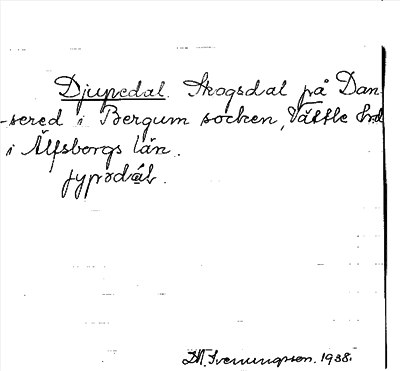 Djupedal. Skogsdal på Dan-
-sered i Bergum socken, Vättle hrd
i Älfsborgs län.
jypədáɫ.
D.A. Svenungsson. 1938.